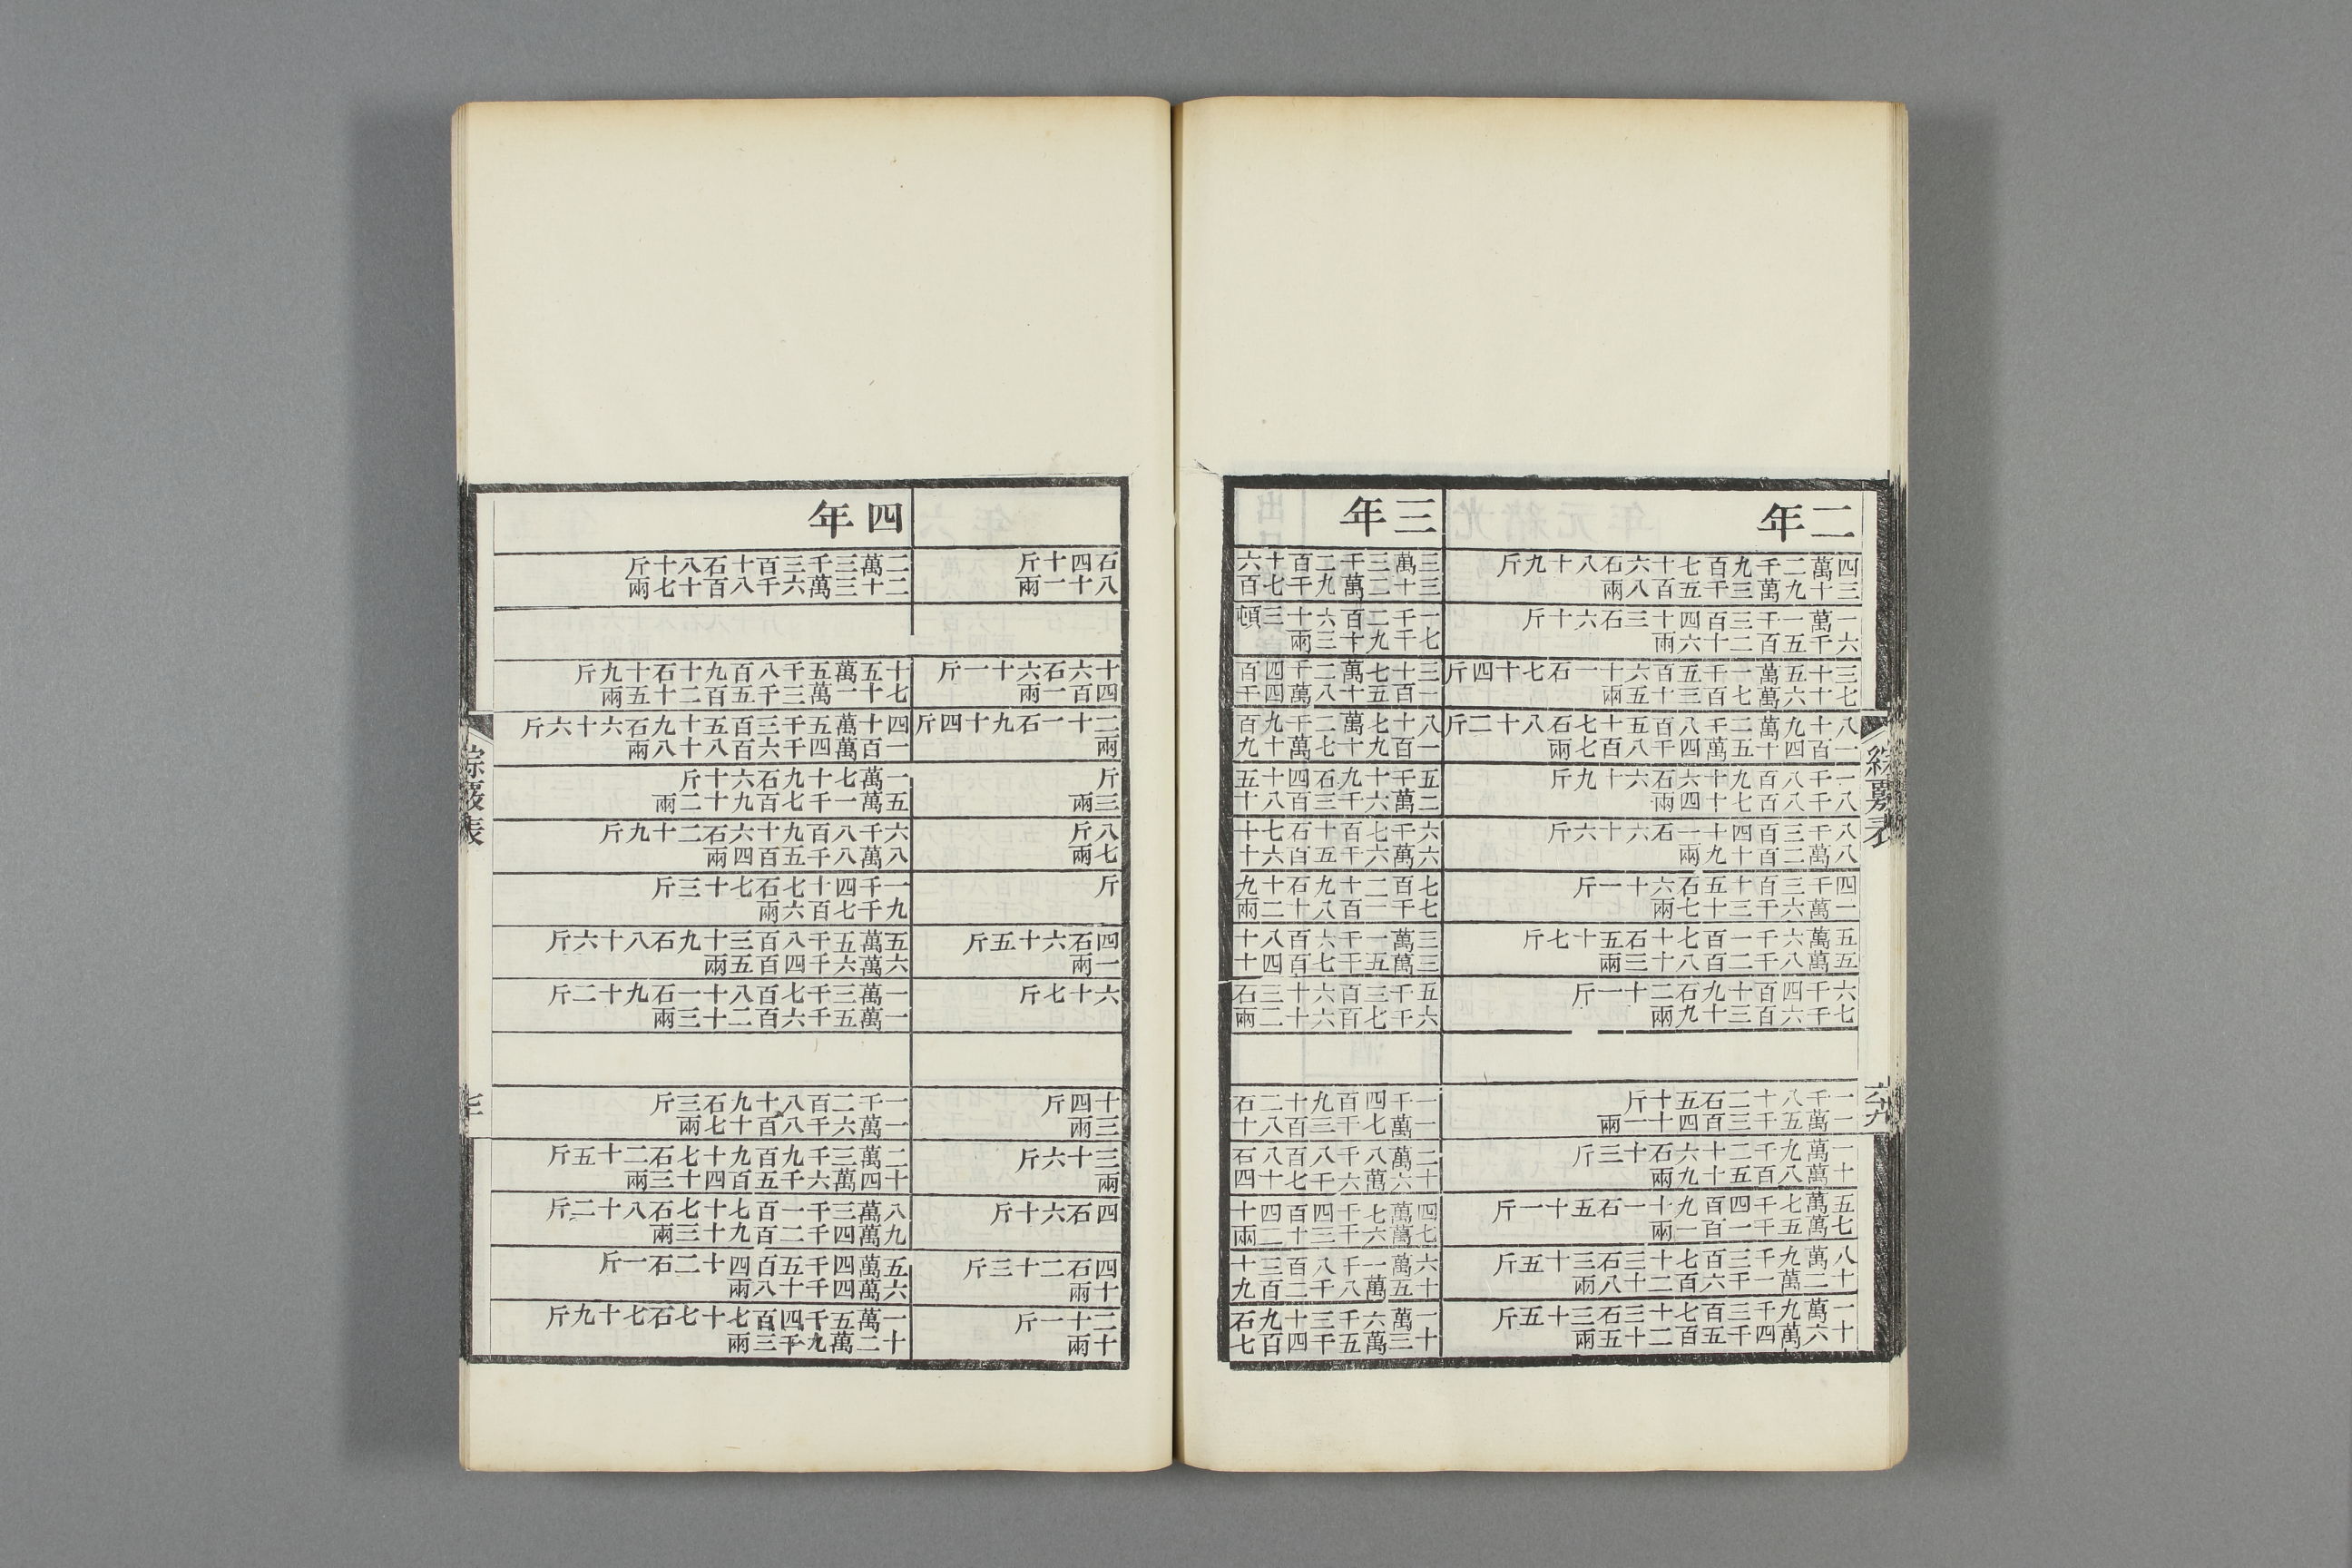 二年
四萬二千九百七十六石八十九斤
三十九萬三千五百八兩
一萬一千三百四十三石六十斤
六千五百二十六兩
三十五萬一千五百六十一石七十四斤
七十六萬七百三十五兩
八十九萬二千八百五十七石八十二斤
一百四十五萬四千八百七兩
一千八百九十六石六十九斤
八千八百七十四兩
八千三百四十一石六十六斤
八萬二百十九兩
四千三百十五石六十一斤
一萬六千三十七兩
五萬六千一百七十石五十七斤
五萬八千二百八十三兩
六千四百十九石二十一斤
七千六百三十九兩
一千八十二石五十斤
一萬五千三百四十一兩
一萬九千二十六石十三斤
十萬八百五十九兩
五萬七千四百九十一石五十一斤
七萬五千一百一兩
八萬九千三百七十三石三十五斤
十二萬一千六百二十八兩
一萬九千三百七十三石三十五斤
十六萬四千五百二十五兩
三年
三萬三千二百十六
三十二萬九千七百
一千二百六十三頓
七千九十三兩
三十七萬二千四百
一百五十八萬四千
八十七萬二千九百
一百九十七萬十九
五千十九石四十五
二萬六千三百八十
六千七百十石七十
六萬六千五百六十
七百二十九石十九
七千一百八十二兩
三萬一千六百八十
三萬五千七百四十
五千三百六十三石
六千七百六十二兩
一千四百九十二石
一萬七千三百八十
二萬八千八百八石
十六萬六千七十四
四萬七千四百四十
七萬六千三十二兩
六萬一千八百三十
十五萬八千二百九
一萬六千三十九石
十三萬五千四百七
石四十斤
八十一兩
十六石六十一斤
四百一兩
二十一石九十四斤
兩
斤
三兩
八斤
七兩
斤
四石六十五斤
一兩
六十七斤
十四斤
三兩
三十六斤
兩
四石六十斤
四石二十三斤
十兩
二十一斤
十兩
四年
二萬三千三百十石八十斤
二十三萬六千八百十七兩
十五萬五千八百九十石十九斤
七十一萬三千五百二十五兩
四十萬五千三百五十九石六十六斤
一百萬四千六百八十八兩
一萬七十九石六十斤
五萬一千七百九十二兩
六千八百九十六石二十九斤
八萬八千五百四兩
一千四十七石七十三斤
九千七百六兩
五萬五千八百三十九石八十六斤
六萬六千四百五兩
一萬三千七百八十一石九十二斤
一萬五千六百二十三兩
一千二百八十九石三斤
一萬六千八百十七兩
二萬三千九百九十七石二十五斤
十四萬六千五百四十三兩
八萬三千一百七十七石八十二斤
九萬四千二百九十三兩
五萬四千五百四十二石一斤
六萬四千十八兩
一萬五千四百七十七石七十九斤
十二萬九千三兩
綜覈表